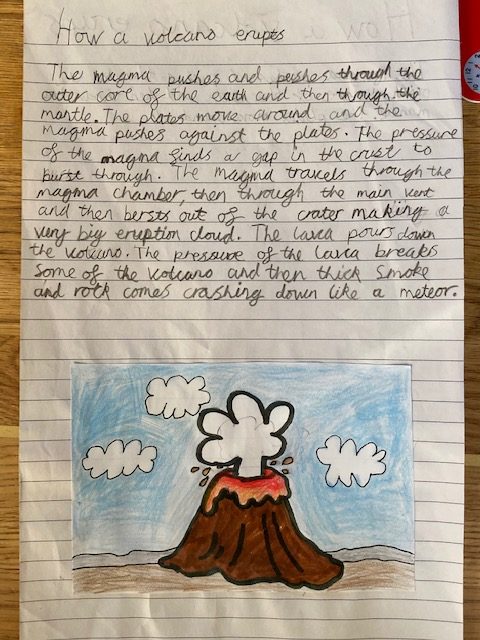 How a volcano erupts
The magma pushes and pushes through the
outer core of the earth and then through the
mantle. The plates move around and the
magma pushes against the plates. The pressure
of the magma finds a gap in the crust to
burst through. The magma travels through the
magma chamber, then through the main vent
and then bersts out of the crater making a
very big eruption cloud. The lava pours down
the volcano. The pressure of the lava breaks
some of the volcano and then thick smoke
and rock comes crashing down like a meteor.